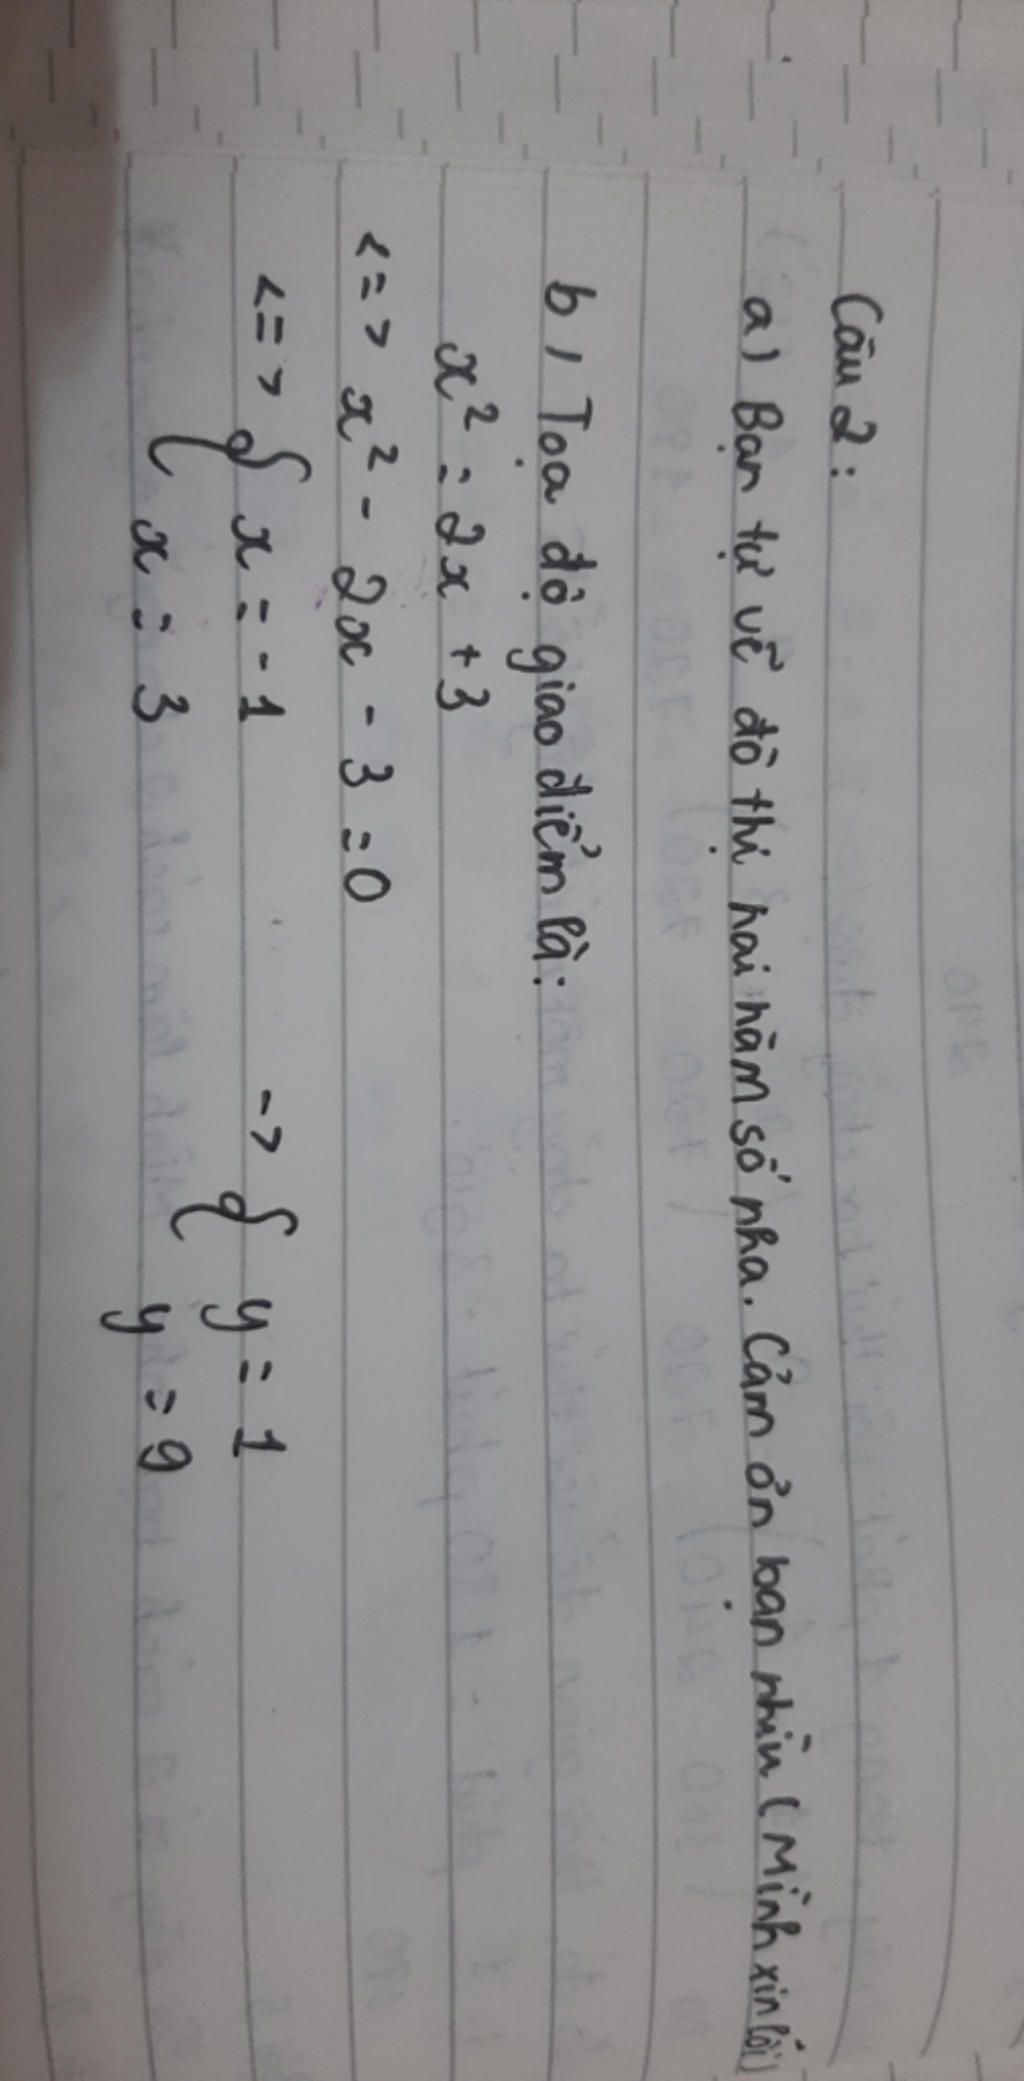 Câu 2:
a) Bạn tự vẽ đồ thị hai hàm số nha. Cảm ơn bạn nhìu (Mình xin lỗi)
b, Tọa độ giao điểm là:
x² = 2x + 3
<=> x² - 2x - 3 = 0
<=> { x = -1 -> { y = 1
x = 3 y = 9